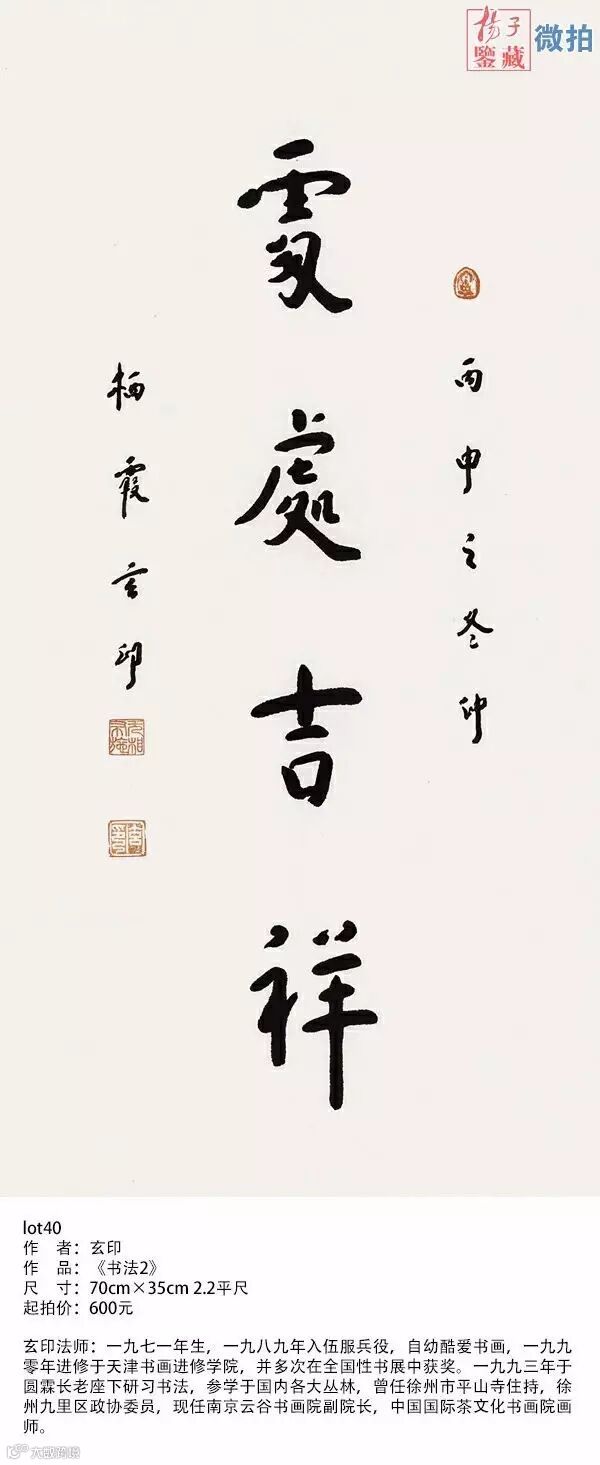 楊子
鑒藏
微拍
丙申之冬仲
處吉祥
栖霞玄印
lot40
作 者：玄印
作 品：《书法2》
尺 寸：70cm×35cm 2.2平尺
起拍价：600元
玄印法师：一九七一年生，一九八九年入伍服兵役，自幼酷爱书画，一九九
零年进修于天津书画进修学院，并多次在全国性书展中获奖。一九九三年于
圆霖长老座下研习书法，参学于国内各大丛林，曾任徐州市平山寺住持，徐
州九里区政协委员，现任南京云谷书画院副院长，中国国际茶文化书画院画
师。
大数跨境